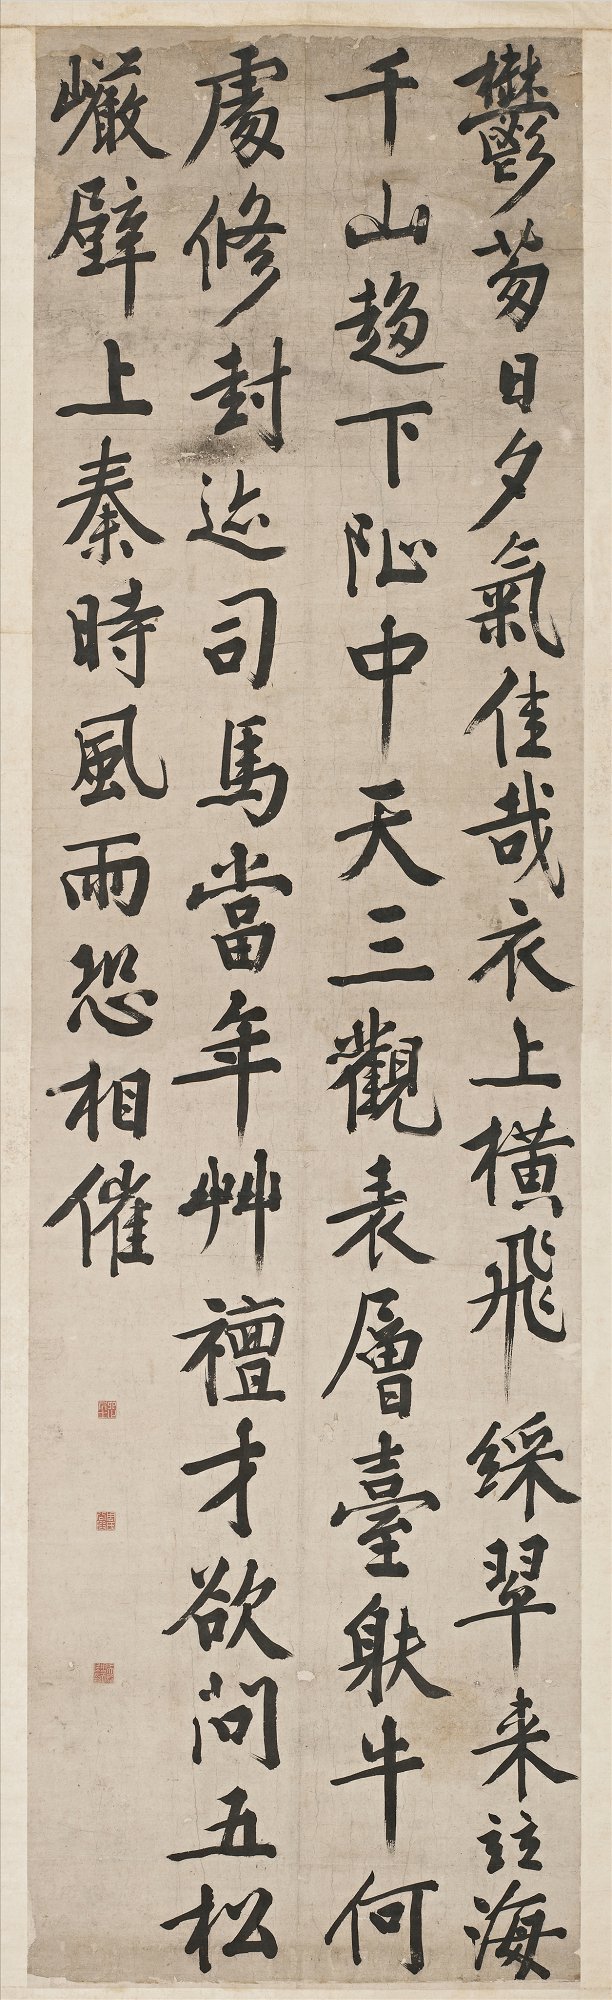 鬱葱日夕氣佳哉衣上橫飛綵翠来竝海
千山趨下阯中天三觀表層臺䠶牛何
處修封迹司馬當年艸䄠才欲問五松
巗壁上秦時風雨恐相催